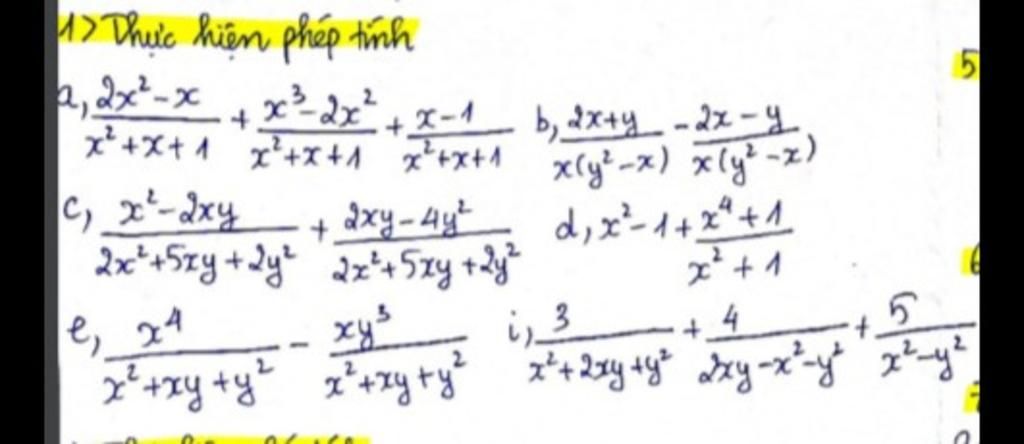 1> Thực hiện phép tính
5
a, (2x² - x)/(x² + x + 1) + (x³ - 2x²)/(x² + x + 1) + (x - 1)/(x² + x + 1) b, (2x + y)/(x(y² - x)) - (2x - y)/(x(y² - x))
c, (x² - 2xy)/(2x² + 5xy + 2y²) + (2xy - 4y²)/(2x² + 5xy + 2y²) d, x² - 1 + (x⁴ + 1)/(x² + 1)
6
e, x⁴/(x² + xy + y²) - xy³/(x² + xy + y²) i, 3/(x² + 2xy + y²) + 4/(2xy - x² - y²) + 5/(x² - y²)